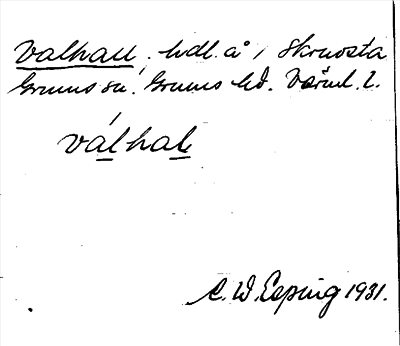 Valhall, hdl. å Skruvsta
Grums sn. Grums hd. Värml. l.
válhal
C. W. Esping 1931.